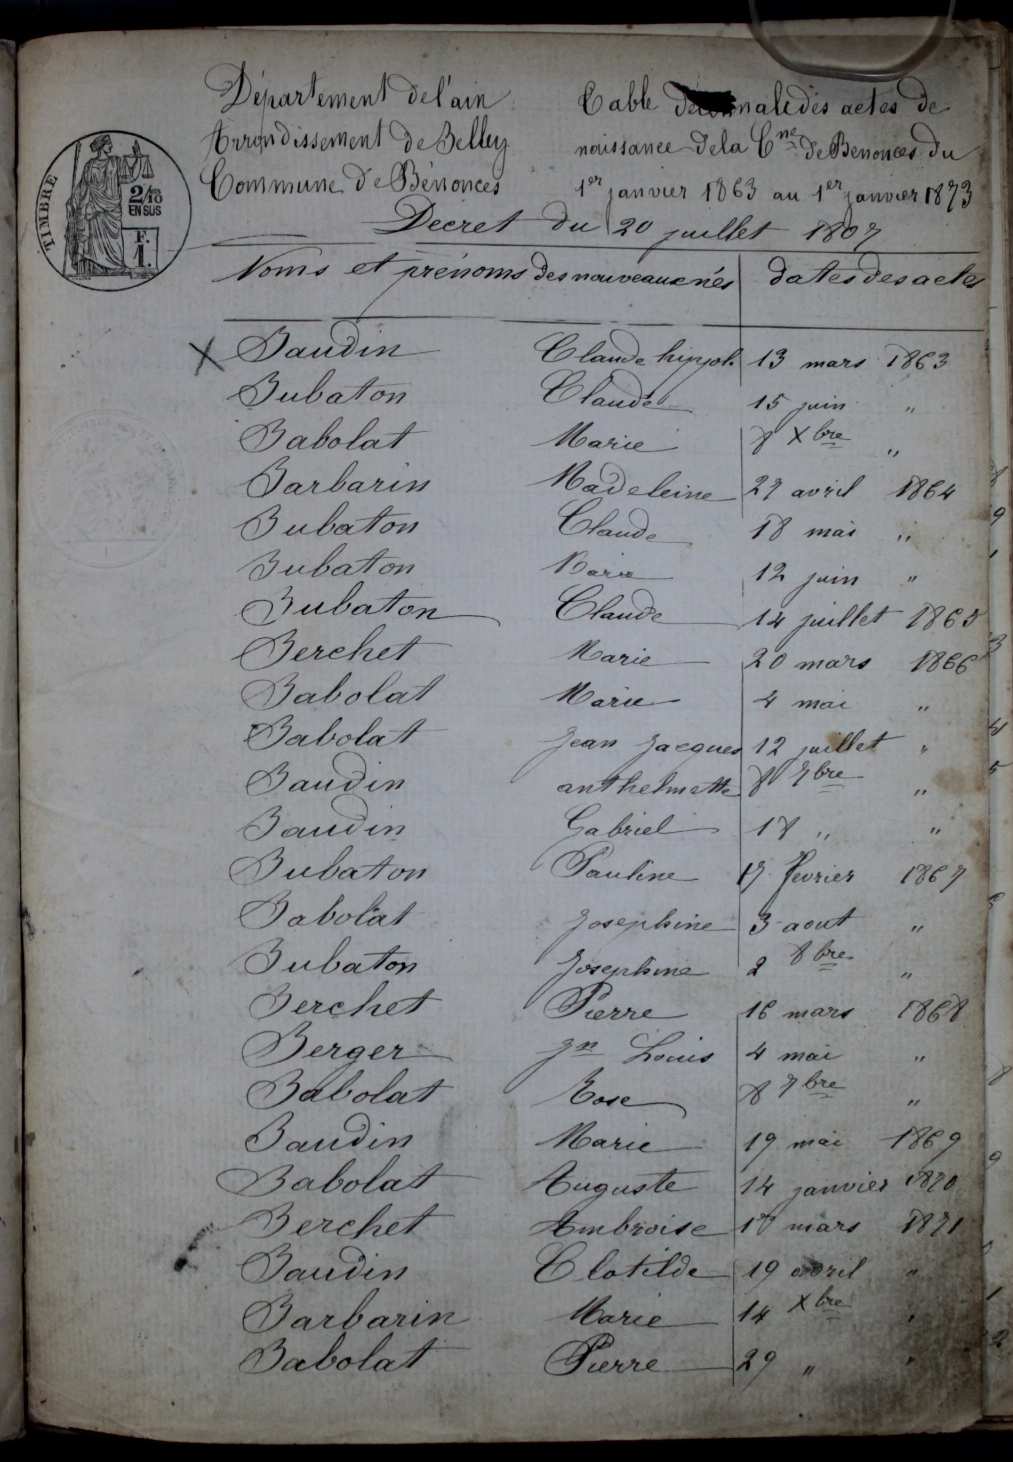 Département de l'ain
Arrondissement de Belley
Commune de Bénonces
Table des actes de
naissance de la Cne de Benonces du
1er janvier 1863 au 1er janvier 1873
Décret du 20 juillet 1807
TIMBRE
2/10
EN SUS
F.
1.
Noms et prénoms des nouveaux nés dates des actes
X Baudin Claude hippol. 13 mars 1863
Bubaton Claude 15 juin "
Babolat Marie 8 Xbre "
Barbarin Madeleine 27 avril 1864
Bubaton Claude 18 mai "
Bubaton Marie 12 juin "
Bubaton Claude 14 juillet 1865
Berchet Marie 20 mars 1866
Babolat Marie 4 mai "
Babolat Jean Jacques 12 juillet "
Baudin anthelmette 8 7bre "
Baudin Gabriel 18 " "
Bubaton Pauline 17 fevrier 1867
Babolat Josephine 3 aout "
Bubaton Josephine 2 8bre "
Berchet Pierre 16 mars 1868
Berger Jn Louis 4 mai "
Babolat Rose 8 7bre "
Baudin Marie 19 mai 1869
Babolat Auguste 14 janvier 1870
Berchet Ambroise mars 1871
Baudin Clotilde 19 avril "
Barbarin Marie 14 Xbre "
Babolat Pierre 29 " "